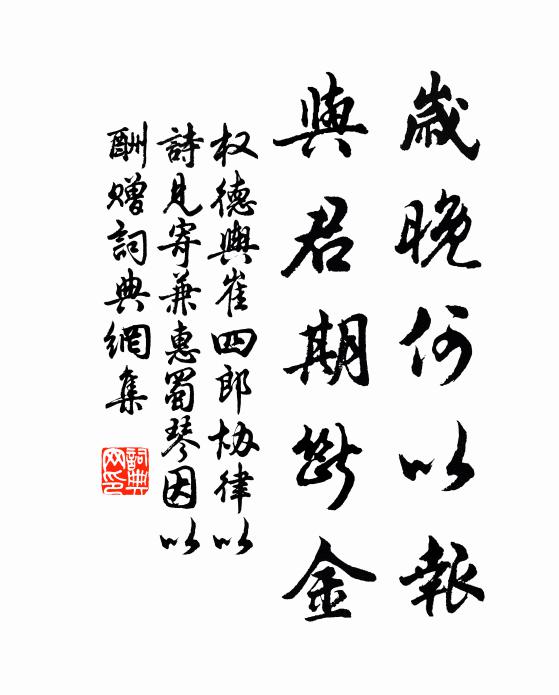 歲晚何以報
與君期斷金
权德輿崔四郎协律以
詩見寄兼惠蜀琴因以
酬贈詞典網集
詞典
网印